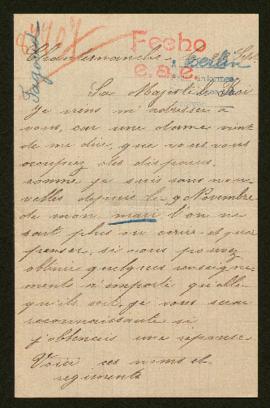 Fecho
e.a.c.
Sa Majesté le Roi
Je viens m'adresser à
vous, car une dame vient
de me dire, que vous vous
occupez des disparus,
comme je suis sans nou-
velles depuis le 9 Novembre
de mon mari l'on ne
sait plus ou ecrire et que
penser, si vous pouvez
obtenir quelques renseigne-
ments n'importe qu'elle
qu'ils soit, je vous serai
reconnaissante si
j'obtenais une reponse
Voici ces noms et
regiments